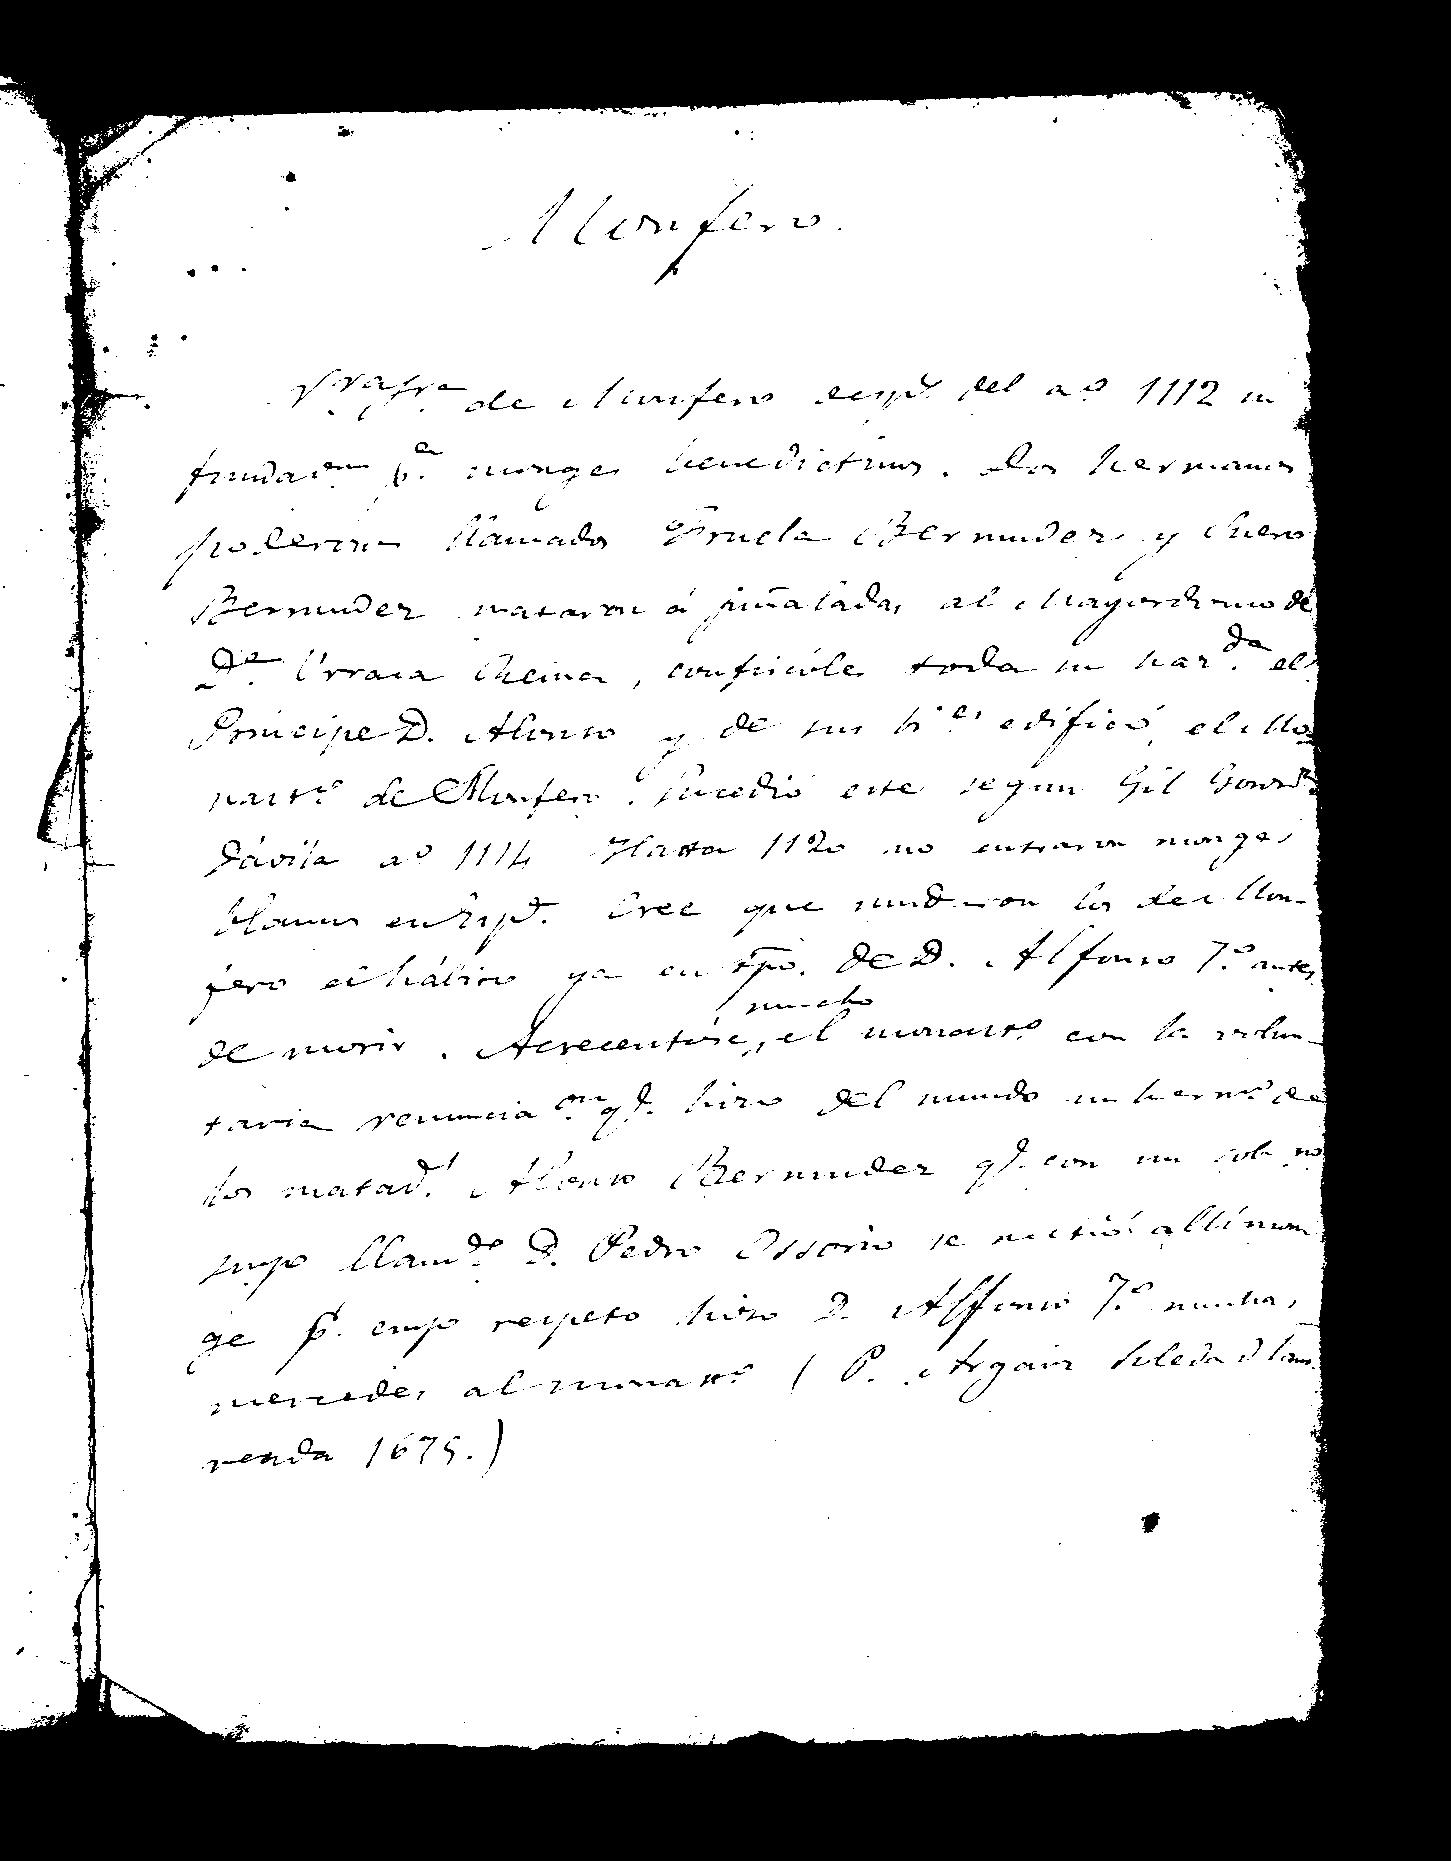 Monfero.
Nra Sra de Monfero despˢ del aº 1112 su
fundaᵒⁿ pᵃ monges benedictinos. Dos hermanos
poderosos llamados Fruela Bermudez y Suero
Bermudez mataron á puñaladas al Mayordomo de
Dᵃ Urraca Reina, confiscóles toda su hazᵈᵃ el
Principe D. Alonso y de sus bˢ edificó el Mo-
nastº de Monfero. Sucedió este segun Gil Gonzᶻ
Dávila aº 1114 Hasta 1120 no entraron monges
blancos en Espᵃ. Cree que mudaron los de Mon-
fero el hábito ya en tpo. de D. Alfonso 7.º antes
de morir. Acrecentóse mucho el monastº con la volun-
taria renunciaᵒⁿ q. hizo del mundo un hermº de
los matadˢ Alonso Bermudez q. con un sobrno
suyo llamdº D. Pedro Ossorio se metió allí mon-
ge p. cuyo respeto hizo D. Alffonso 7.º muchas
mercedes al monastº (P. Argaiz Soledad Lau-
reada 1675.)